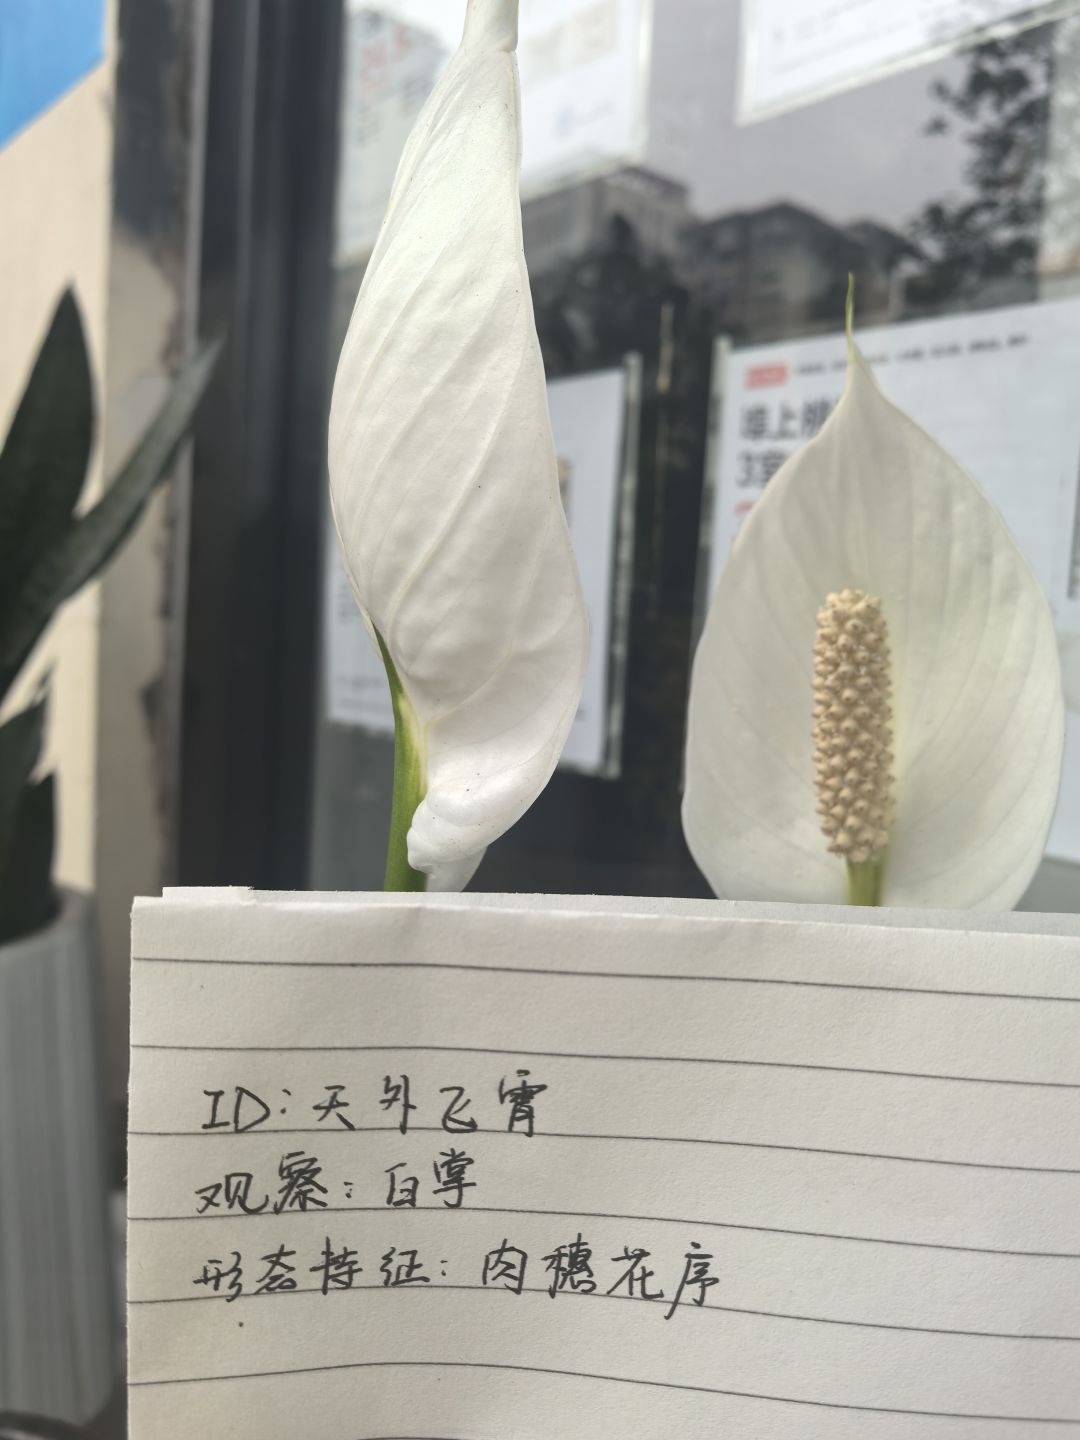 埠上
3室
ID：天外飞霄
观察：白掌
形态特征：肉穗花序